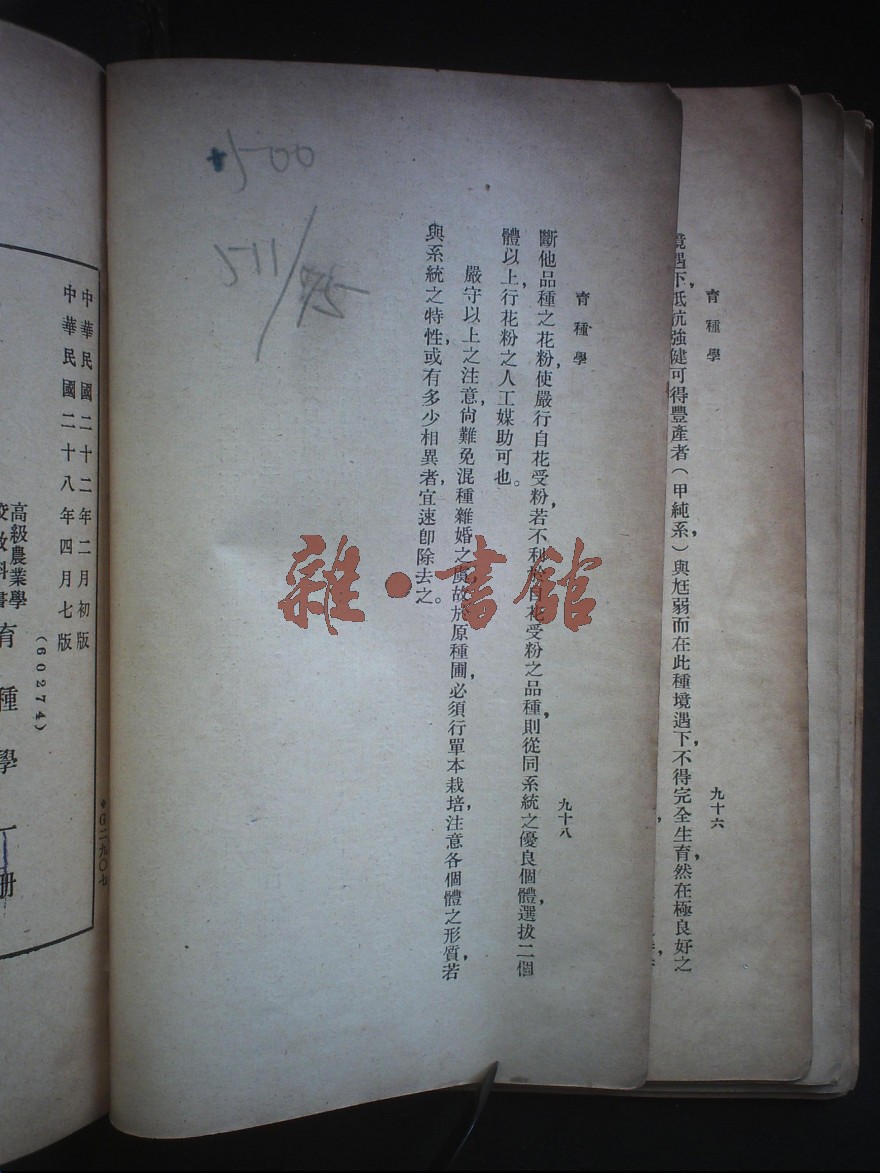 境遇下，抵抗強健可得豐產者（甲純系）與尪弱而在此種境遇下，不得完全生育，然在極良好之
育種學
九十六
育種學
九十八
斷他品種之花粉，使嚴行自花受粉，若不利於自花受粉之品種，則從同系統之優良個體，選拔二個
體以上，行花粉之人工媒助可也。
嚴守以上之注意，尙難免混種雜婚之虞，故於原種圃，必須行單本栽培，注意各個體之形質，若
與系統之特性，或有多少相異者，宜速卽除去之。
+500
511/95
雜·書館
＊G二九〇七
中華民國二十二年二月初版
中華民國二十八年四月七版
(60274)
高級農業學
校教科書
育種學一册